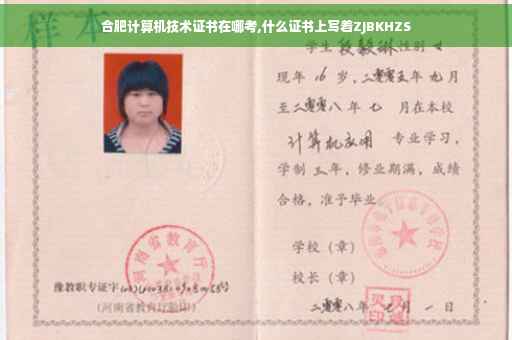 合肥计算机技术证书在哪考,什么证书上写着ZJBKHZS
样本
学生 段毅琳 性别 女
现年 16 岁，二零零五年 九 月
至二零零八年 七 月在本校
计算机应用 专业学习，
学制 三 年，修业期满，成绩
合格，准予毕业。
学校（章）
校长（章）
二零零八年 七 月 一 日
河南省教育厅
豫教职专证字
（河南省教育厅验印）